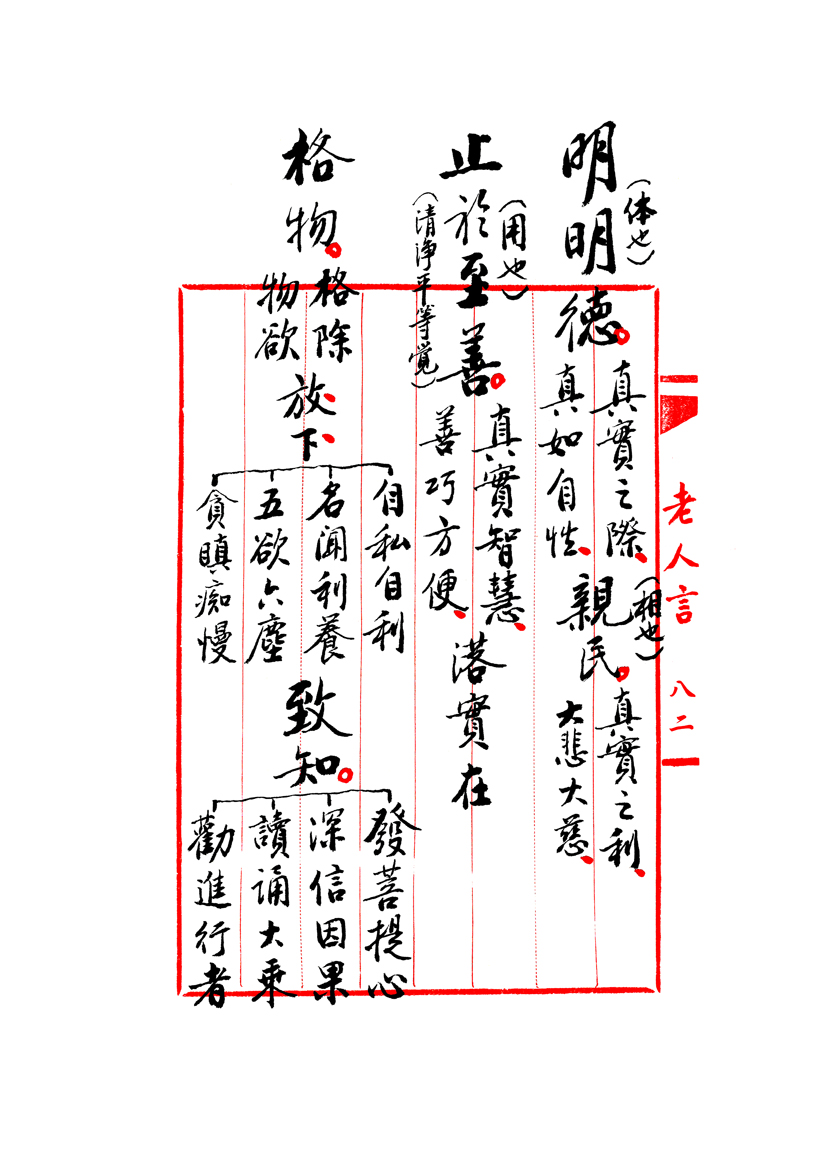 明明德。
（体也）
真實之際、
真如自性、
親民。
（相也）
真實之利、
大悲大慈、
止於至善。
（用也）
（清淨平等覚）
真實智慧、
善巧方便、
落實在
格物。
格除
物欲
放下
自私自利
名聞利養
五欲六塵
貪瞋痴慢
致知。
發菩提心
深信因果
讀誦大乗
勸進行者
老人言 八二